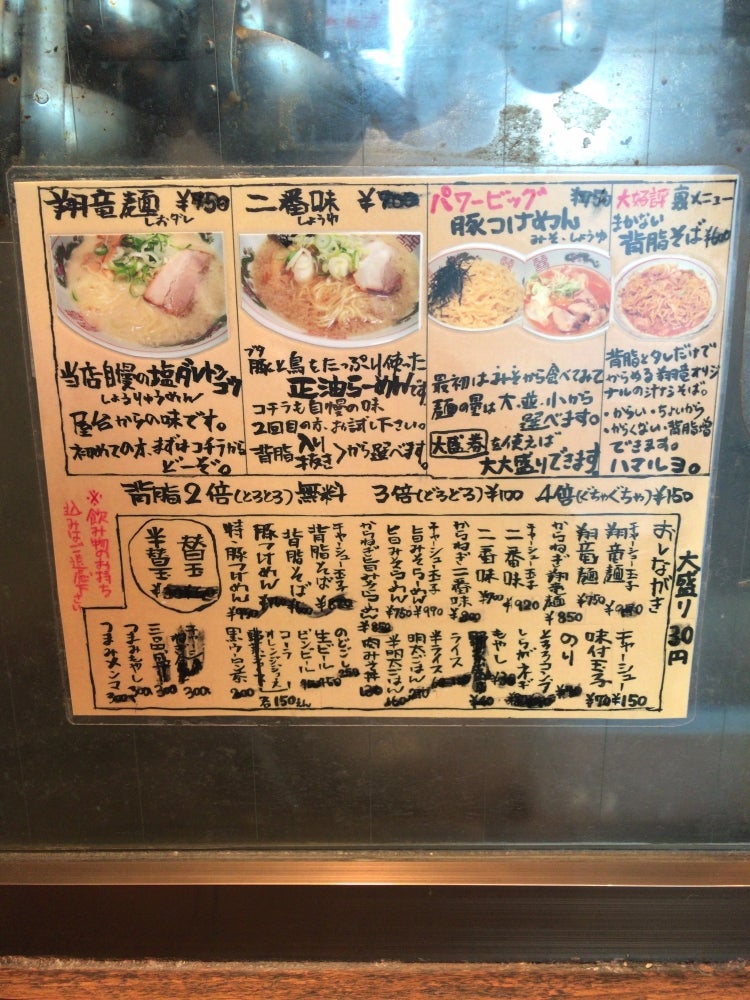 翔竜麺 ¥750
しおダレ
当店自慢の塩ダレトンコウ
しょうりゅうめん
屋台からの味です。
初めての方、まずはコチラから
どーぞ。
二番味
しょうゆ
ブタ
豚と鳥もたっぷり使った
正油らーめんです
コチラも自慢の味
2回目の方、お試し下さい。
背脂 入り 抜き から選べます。
パワービッグ
豚つけめん
みそ・しょうゆ
最初はみそから食べてみて
麺の量は大、並、小から
選べます。
大盛券を使えば
大大盛りできます
大好評 裏メニュー
まかない
背脂そば
背脂とタレだけで
からめる翔竜オリジ
ナルの汁なしそば。
・からい・ちょいから
・からくない・背脂増
できます。
ハマルヨ。
背脂2倍(とろとろ)無料 3倍(どろどろ)¥100 4倍(ぐちゃぐちゃ)¥150
※飲み物のお持ち
込みは
大盛り30円
おしながき
チャーシュー玉子
翔竜麺
翔竜麺 ¥750
からねぎ翔竜麺 ¥850
チャーシュー玉子
二番味 ¥920
二番味
からねぎ二番味
チャーシュー玉子
旨みそらーめん ¥990
旨みそらーめん ¥750
からねぎ旨みそらーめん ¥850
チャーシュー玉子
背脂そば
背脂そば
豚つけめん
特豚つけめん
替玉
半替玉
チャーシュー ¥150
味付玉子 ¥70
のり
とろろコンブ
しらがネギ
もやし
ライス
半ライス
明太ごはん
半明太ごはん 160
肉みそ丼 130
のどごし
生ビール
ビンビール
コーラ
オレンジジュース
黒ウーロン茶 200
各150えん
300
つまみもやし 300
つまみメンマ 300